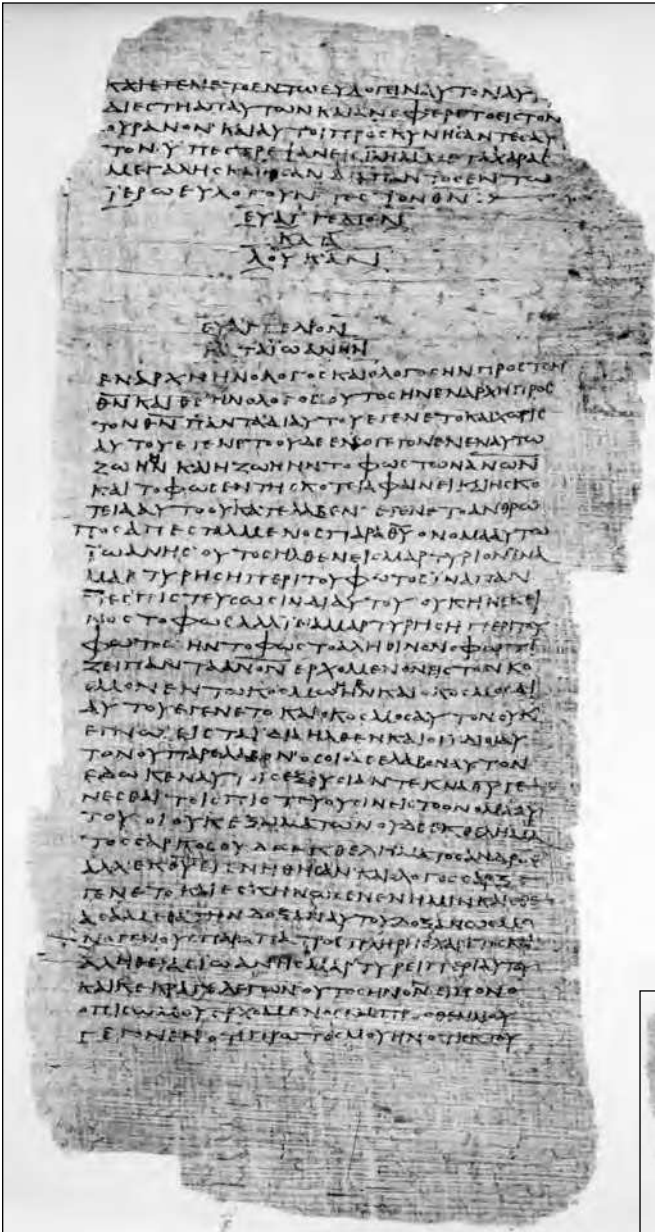 ΚΑΙΕΓΕΝΕΤΟΕΝΤΩΕΥΛΟΓΕΙΝΑΥΤΟΝΑΥ
ΔΙΕϹΤΗΑΠΑΥΤΩΝΚΑΙΑΝΕΦΕΡΕΤΟΕΙϹΤΟΝ
ΟΥΡΑΝΟΝ·ΚΑΙΑΥΤΟΙΠΡΟϹΚΥΝΗϹΑΝΤΕϹΑΥ
ΤΟΝ·ΥΠΕϹΤΡΕΨΑΝΕΙϹΙ̅Λ̅Η̅Μ̅ΜΕΤΑΧΑΡΑϹ
ΜΕΓΑΛΗϹΚΑΙΗϹΑΝΔΙΑΠΑΝΤΟϹΕΝΤΩ
ΪΕΡΩΕΥΛΟΓΟΥΝΤΕϹΤΟΝΘ̅Ν̅·
ΕΥΑΓΓΕΛΙΟΝ
ΚΑΤΑ
ΛΟΥΚΑΝ
ΕΥΑΓΓΕΛΙΟΝ
ΚΑΤΑΪΩΑΝΗΝ
ΕΝΑΡΧΗΗΝΟΛΟΓΟϹΚΑΙΟΛΟΓΟϹΗΝΠΡΟϹΤΟΝ
Θ̅Ν̅ΚΑΙΘ̅Ϲ̅ΗΝΟΛΟΓΟϹ·ΟΥΤΟϹΗΝΕΝΑΡΧΗΠΡΟϹ
ΤΟΝΘ̅Ν̅ΠΑΝΤΑΔΙΑΥΤΟΥΕΓΕΝΕΤΟΚΑΙΧΩΡΙϹ
ΑΥΤΟΥΕΓΕΝΕΤΟΟΥΔΕΕΝ·ΟΓΕΓΟΝΕΝΕΝΑΥΤΩ
ΖΩΗΗΝΚΑΙΗΖΩΗΗΝΤΟΦΩϹΤΩΝΑ̅Ν̅Ω̅Ν̅
ΚΑΙΤΟΦΩϹΕΝΤΗϹΚΟΤΕΙΑΦΑΙΝΕΙΚΑΙΗϹΚΟ
ΤΕΙΑΑΥΤΟΥΚΑΤΕΛΑΒΕΝ·ΕΓΕΝΕΤΟΑΝΘΡΩ
ΠΟϹΑΠΕϹΤΑΛΜΕΝΟϹΠΑΡΑΘ̅Υ̅ΟΝΟΜΑΑΥΤΩ
ΪΩΑΝΗϹ·ΟΥΤΟϹΗΛΘΕΝΕΙϹΜΑΡΤΥΡΙΟΝΪΝΑ
ΜΑΡΤΥΡΗϹΗΠΕΡΙΤΟΥΦΩΤΟϹΪΝΑΠΑΝ
ΤΕϹΠΙϹΤΕΥϹΩϹΙΝΔΙΑΥΤΟΥ·ΟΥΚΗΝΕΚΕΙ
ΝΟϹΤΟΦΩϹΑΛΛΪΝΑΜΑΡΤΥΡΗϹΗΠΕΡΙΤΟΥ
ΦΩΤΟϹ·ΗΝΤΟΦΩϹΤΟΑΛΗΘΙΝΟΝΟΦΩΤΙ
ΖΕΙΠΑΝΤΑΑ̅Ν̅Ο̅Ν̅ΕΡΧΟΜΕΝΟΝΕΙϹΤΟΝΚΟ
ϹΜΟΝΕΝΤΩΚΟϹΜΩΗΝΚΑΙΟΚΟϹΜΟϹΔΙ
ΑΥΤΟΥΕΓΕΝΕΤΟΚΑΙΟΚΟϹΜΟϹΑΥΤΟΝΟΥΚ
ΕΓΝΩ·ΕΙϹΤΑΪΔΙΑΗΛΘΕΝΚΑΙΟΙΪΔΙΟΙΑΥ
ΤΟΝΟΥΠΑΡΕΛΑΒΟΝ·ΟϹΟΙΔΕΕΛΑΒΟΝΑΥΤΟΝ
ΕΔΩΚΕΝΑΥΤΟΙϹΕΞΟΥϹΙΑΝΤΕΚΝΑΘ̅Υ̅ΓΕ
ΝΕϹΘΑΙΤΟΙϹΠΙϹΤΕΥΟΥϹΙΝΕΙϹΤΟΟΝΟΜΑΑΥ
ΤΟΥ·ΟΙΟΥΚΕΞΑΙΜΑΤΩΝΟΥΔΕΕΚΘΕΛΗΜΑ
ΤΟϹϹΑΡΚΟϹΟΥΔΕΕΚΘΕΛΗΜΑΤΟϹΑΝΔΡΟϹ
ΑΛΛΕΚΘ̅Υ̅ΕΓΕΝΗΘΗϹΑΝ·ΚΑΙΟΛΟΓΟϹϹΑΡΞΕ
ΓΕΝΕΤΟΚΑΙΕϹΚΗΝΩϹΕΝΕΝΗΜΙΝΚΑΙΕΘΕ
ΑϹΑΜΕΘΑΤΗΝΔΟΞΑΝΑΥΤΟΥΔΟΞΑΝΩϹΜΟ
ΝΟΓΕΝΟΥϹΠΑΡΑΠΑΤΡΟϹΠΛΗΡΗϹΧΑΡΙΤΟϹΚΑΙ
ΑΛΗΘΕΙΑϹΪΩΑΝΗϹΜΑΡΤΥΡΕΙΠΕΡΙΑΥΤΟΥ
ΚΑΙΚΕΚΡΑΓΕΛΕΓΩΝΟΥΤΟϹΗΝΟΝΕΙΠΟΝΟ
ΟΠΙϹΩΜΟΥΕΡΧΟΜΕΝΟϹΕΜΠΡΟϹΘΕΝΜΟΥ
ΓΕΓΟΝΕΝΟΤΙΠΡΩΤΟϹΜΟΥΗΝΟΤΙΕΚΤΟΥ